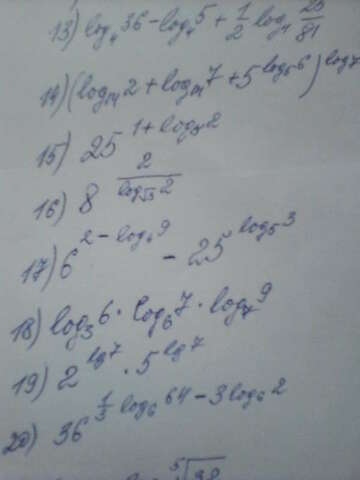 13) log₄ 36 - log₄ 5 + 1/2 log₄ 25/81
14) (log₁₄ 2 + log₁₄ 7 + 5^(log₅ 6))^(log₇
15) 25^(1 + log 2)
16) 8^(2/(log_√5 2))
17) 6^(2 - log₆ 9) - 25^(log₅ 3)
18) log₃ 6 · log₆ 7 · log₇ 9
19) 2^(lg 7) · 5^(lg 7)
20) 36^(1/3 log₆ 64 - 3 log₆ 2)